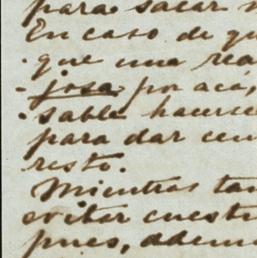 para sacar
En caso de qu
que una rea
josa por acá,
sable hacerse
para dar cuen
resto.
Mientras tan
evitar cuesti
pues, adem